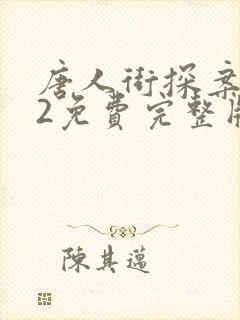 唐人街探案
2免费完整版
陳其邁